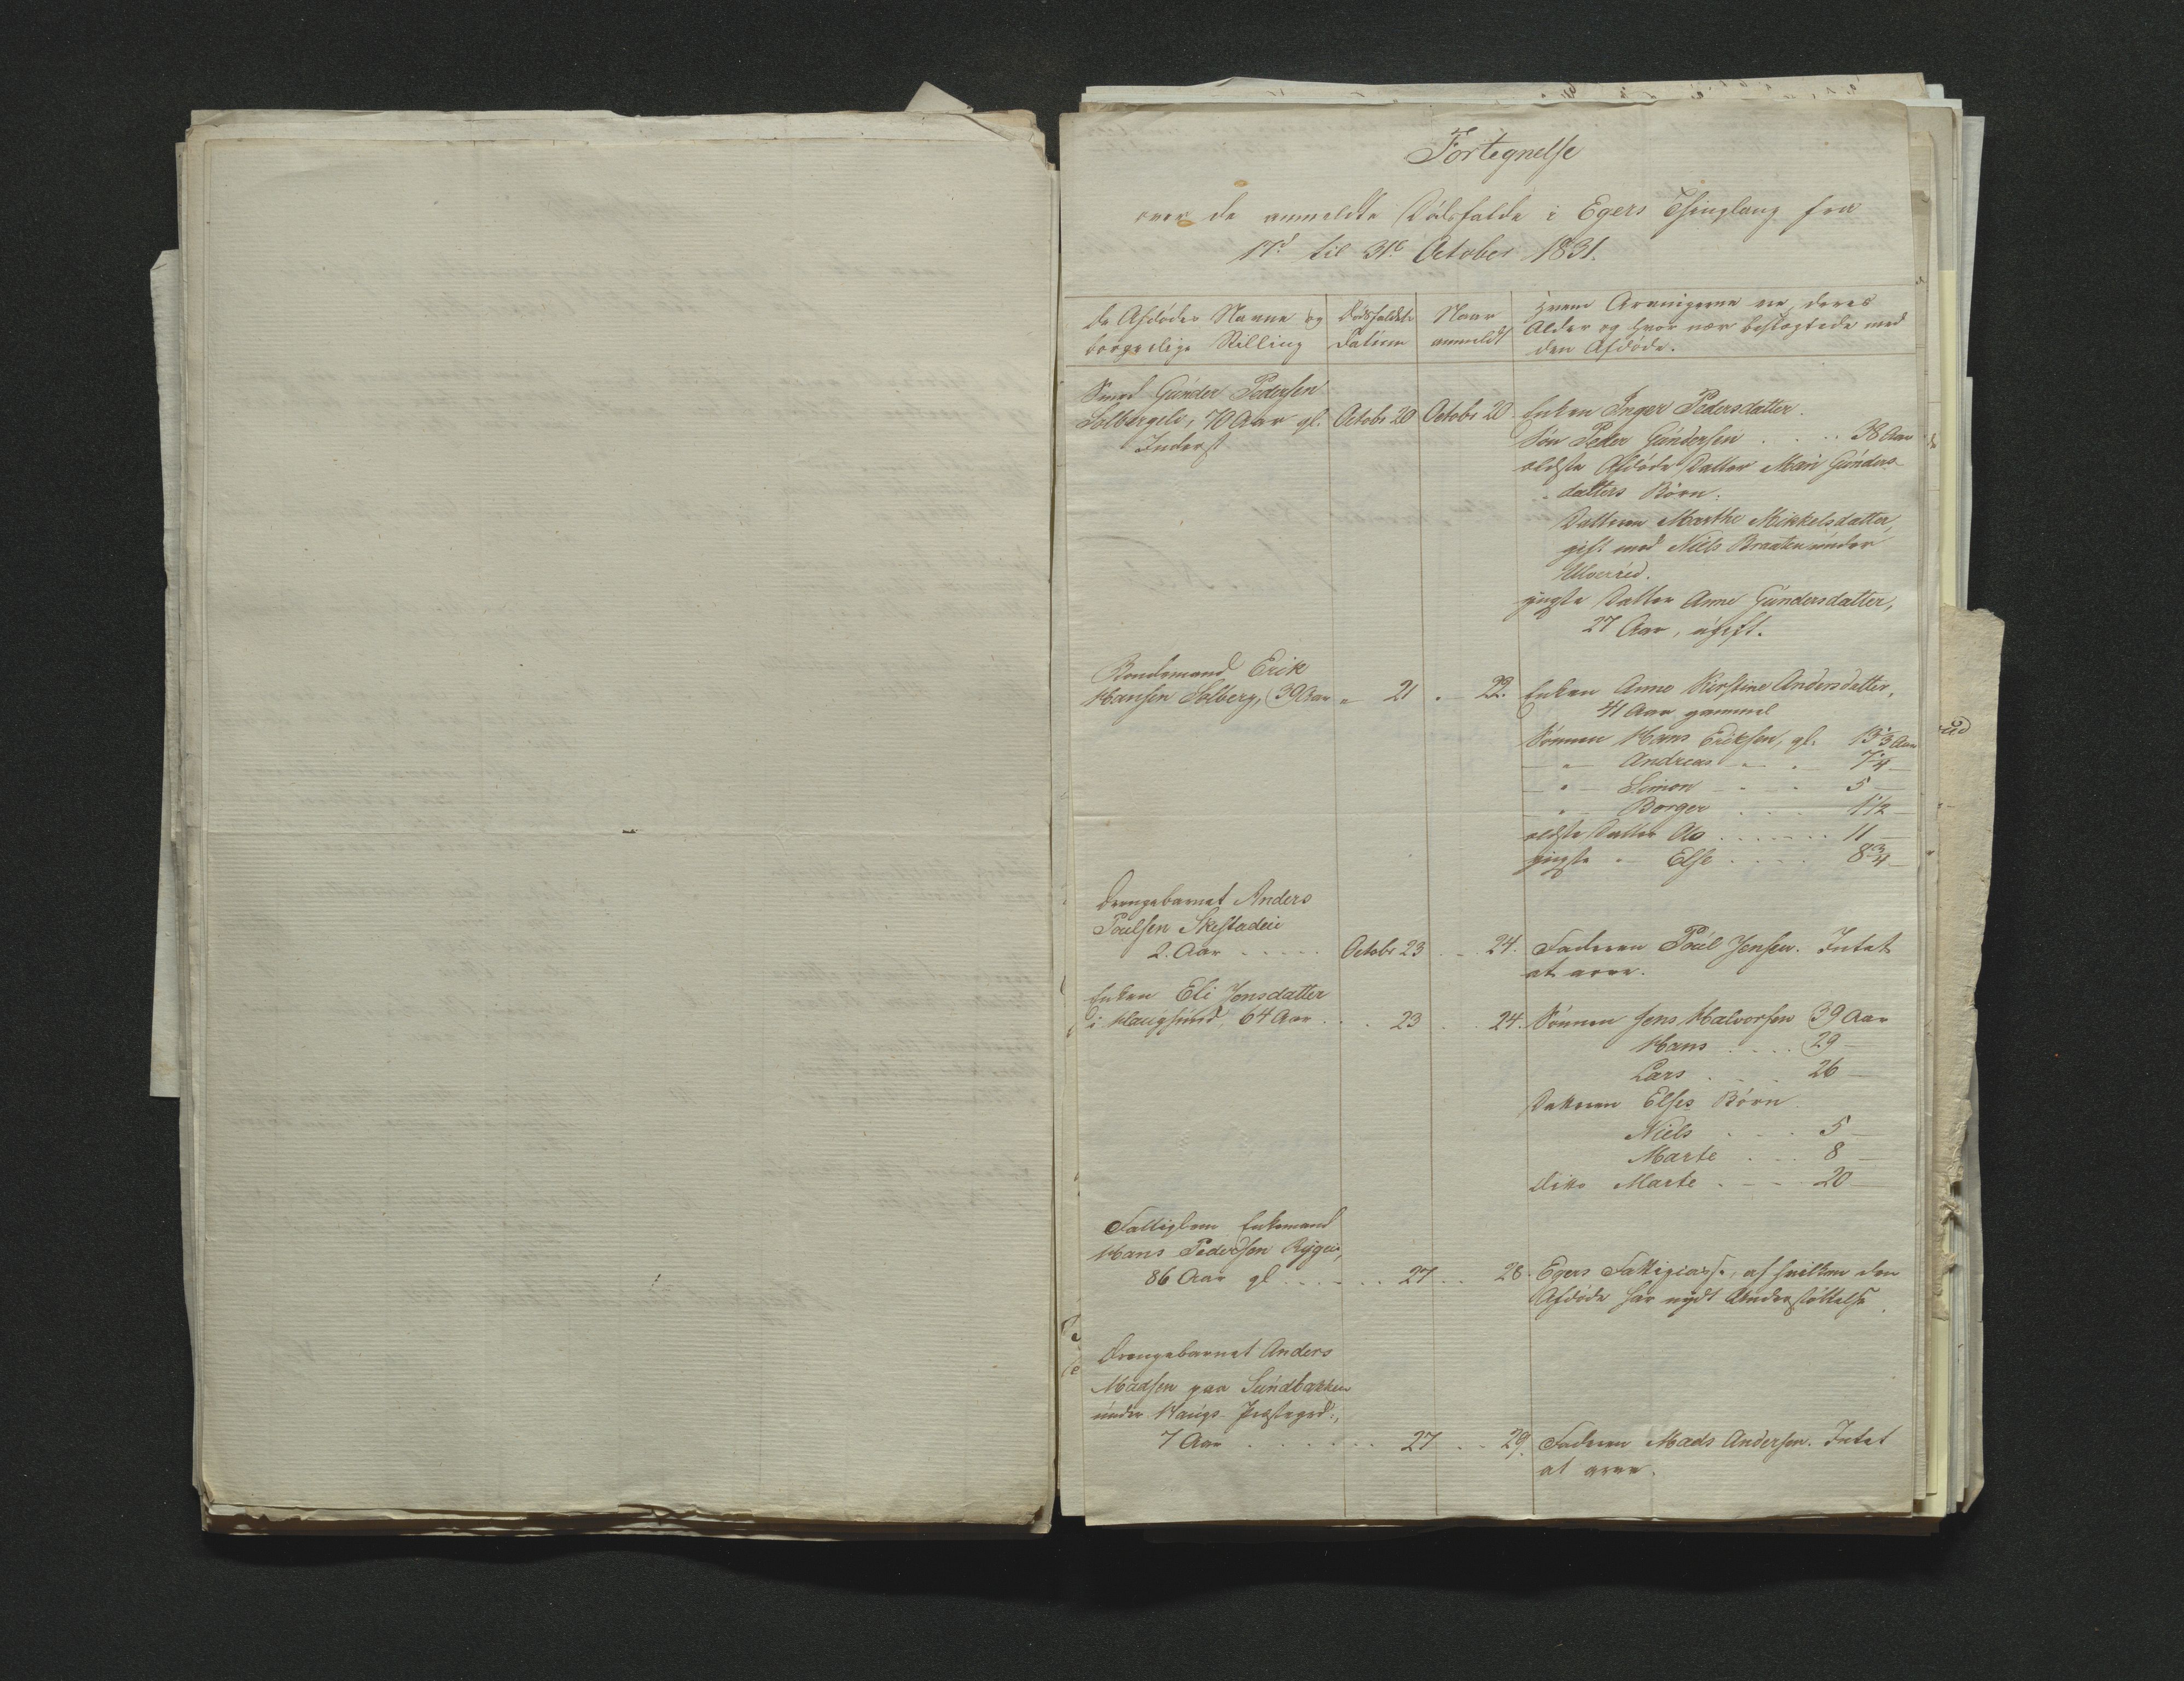 Fortegnelse
over de anmeldte Dødsfalde i Egers Thinglaug fra
17d til 31te October 1831.
De Afdødes Navne og borgerlige Stilling
Dødsfaldets Datum
Naar anmeldt
Hvem Arvingerne ere, deres
Alder og hvor nær beslægtede med
den Afdøde.
Smed Gunder Pedersen
Solbergeie, 70 Aar gl. Octobr 20 Octobr 20. Enken Inger Pedersdatter.
Inderst
Søn Peder Gundersen . . . . 38 Aar
ældste Afdøde Datter Mari Gunders-
datters Børn.
Datteren Marthe Mikkelsdatter,
gift med Niels Braaten under
Ulverud.
yngste Datter Anne Gundersdatter,
27 Aar, ugift.
Bondemand Erik
Hansen Solberg, 39 Aar " 21 " 22. Enken Anne Kirstine Andersdatter,
41 Aar gammel
Sønnen Hans Eriksen, gl. 13 1/3 Aar
- " - Andreas - " - 7 1/4 -
- " - Simon - - - 5 -
- " - Borger . . . . 1 1/2 -
ældste Datter Ao . . . . . . 11 -
yngste - " - Else . . . . 8 3/4 -
Drengebarnet Anders
Poulsen Skistadeie
2. Aar . . . . . Octobr 23 . . 24. Faderen Poul Jensen. Intet
at arve.
Enken Eli Jonsdatter
i Haugsund, 64 Aar . . . 23 . . 24. Sønnen Jens Halvorsen 39 Aar
Hans . . . . 29 -
Lars . . . 26 -
Datteren Elses Børn
Niels . . . 5 -
Marte . . . 8 -
Ditto Marte . . . 20 -
Fattiglem Enkemand
Hans Pedersen Rygeie,
86 Aar gl . . . . . . 27 . . 28. Egers Fattigcasse, af hvilken den
Afdøde har nydt Understøttelse.
Drengebarnet Anders
Madsen paa Sundbakken
under Haugs Præstegrd:,
7 Aar . . . . . . 27 . . 29. Faderen Mads Andersen. Intet
at arve.